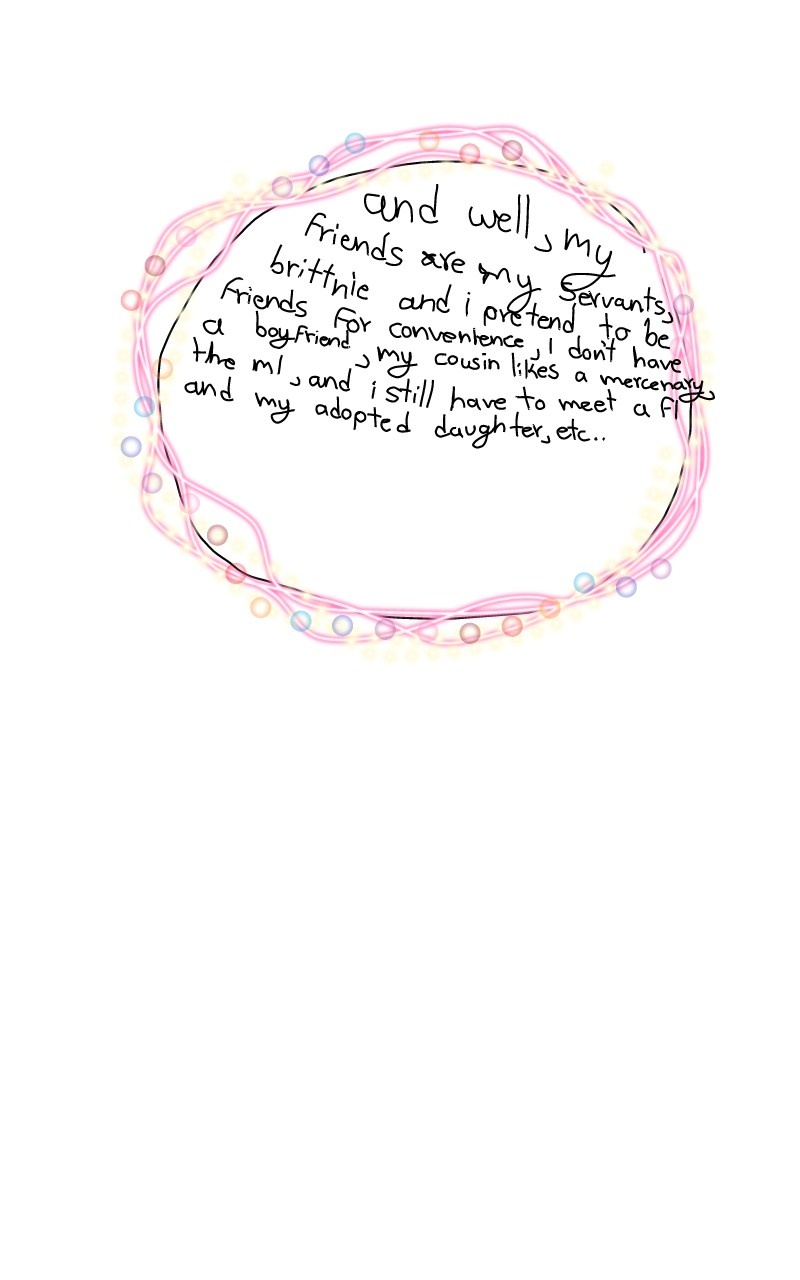 and well, my
friends are my servants,
brittnie and i pretend to be
friends for convenience, I don't have
a boyfriend, my cousin likes a mercenary,
the ml, and i still have to meet a fl
and my adopted daughter, etc..